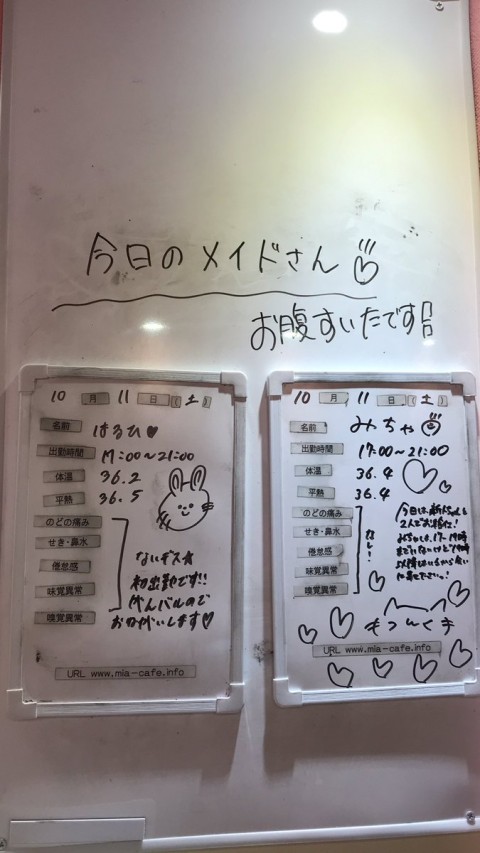 今日のメイドさん
お腹すいたです!!
10 月 11 日 (土)
名前 はるひ♥
出勤時間 17:00〜21:00
体温 36.2
平熱 36.5
のどの痛み
せき・鼻水
倦怠感
味覚異常
嗅覚異常
ないデス★
初出勤です!!
がんバルので
おねがいします♡
URL www.mia-cafe.info
10 月 11 日 (土)
名前 みちゃ
出勤時間 17:00〜21:00
体温 36.4
平熱 36.4
のどの痛み
せき・鼻水
倦怠感
味覚異常
嗅覚異常
なし!
今日は新人ちゃんと
2人でお給仕!
みちゃしも17-19時
までいないけど19時
以降はいるから会い
に来てださい!
URL www.mia-cafe.info